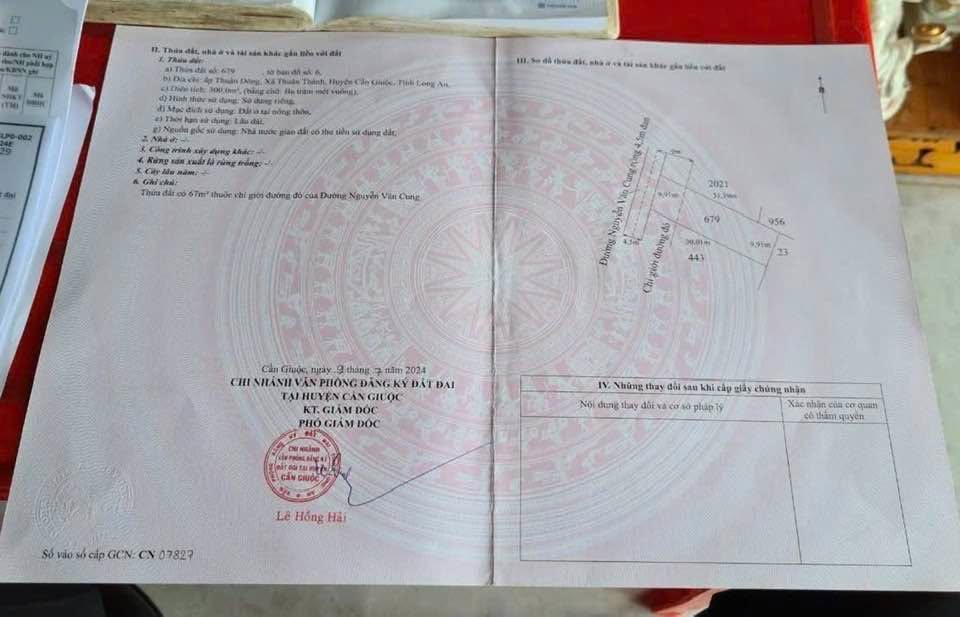 dành cho NH uỷ
thu/NH phối hợp
u/KBNN ghi
Mã
NHKT
(TM)
Mã
ĐBHC
LP0-002
24E
29
II. Thửa đất, nhà ở và tài sản khác gắn liền với đất
1. Thửa đất:
a) Thửa đất số: 679 , tờ bản đồ số: 6,
b) Địa chỉ: ấp Thuận Đông, Xã Thuận Thành, Huyện Cần Giuộc, Tỉnh Long An,
c) Diện tích: 300,0m², (bằng chữ: Ba trăm mét vuông),
d) Hình thức sử dụng: Sử dụng riêng,
đ) Mục đích sử dụng: Đất ở tại nông thôn,
e) Thời hạn sử dụng: Lâu dài,
g) Nguồn gốc sử dụng: Nhà nước giao đất có thu tiền sử dụng đất;
2. Nhà ở: -/-
3. Công trình xây dựng khác: -/-
4. Rừng sản xuất là rừng trồng: -/-
5. Cây lâu năm: -/-
6. Ghi chú:
Thửa đất có 67m² thuộc chỉ giới đường đỏ của Đường Nguyễn Văn Cung.
Cần Giuộc, ngày 9 tháng 7 năm 2024
CHI NHÁNH VĂN PHÒNG ĐĂNG KÝ ĐẤT ĐAI
TẠI HUYỆN CẦN GIUỘC
KT. GIÁM ĐỐC
PHÓ GIÁM ĐỐC
CHI NHÁNH
VĂN PHÒNG ĐĂNG KÝ
ĐẤT ĐAI TẠI HUYỆN
CẦN GIUỘC
Lê Hồng Hải
Số vào sổ cấp GCN: CN 07827
III. Sơ đồ thửa đất, nhà ở và tài sản khác gắn liền với đất
Đường Nguyễn Văn Cung rộng 4,5m đan
2021
31,39m
9,97m
956
679
4,5m
30,01m
9,91m
23
443
Chỉ giới đường đỏ
IV. Những thay đổi sau khi cấp giấy chứng nhận
Nội dung thay đổi và cơ sở pháp lý
Xác nhận của cơ quan
có thẩm quyền